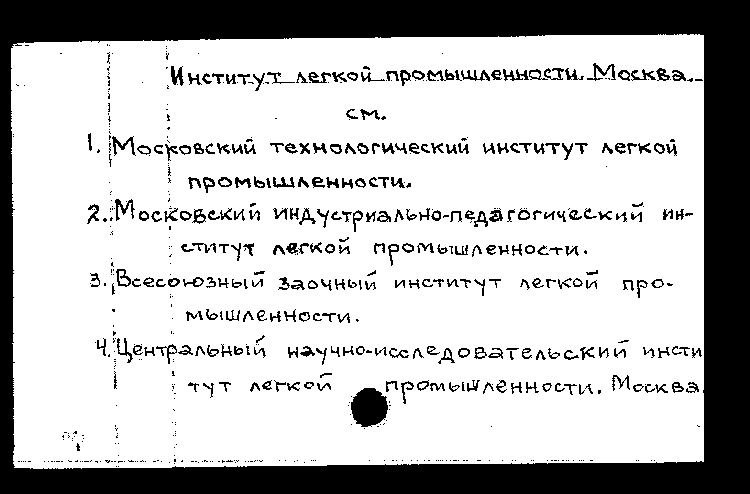 Институт легкой промышленности. Москва.
см.
1. Московский технологический институт легкой
промышленности.
2. Московский индустриально-педагогический ин-
ститут легкой промышленности.
3. Всесоюзный заочный институт легкой про-
мышленности.
4. Центральный научно-исследовательский инсти
тут легкой промышленности. Москва.